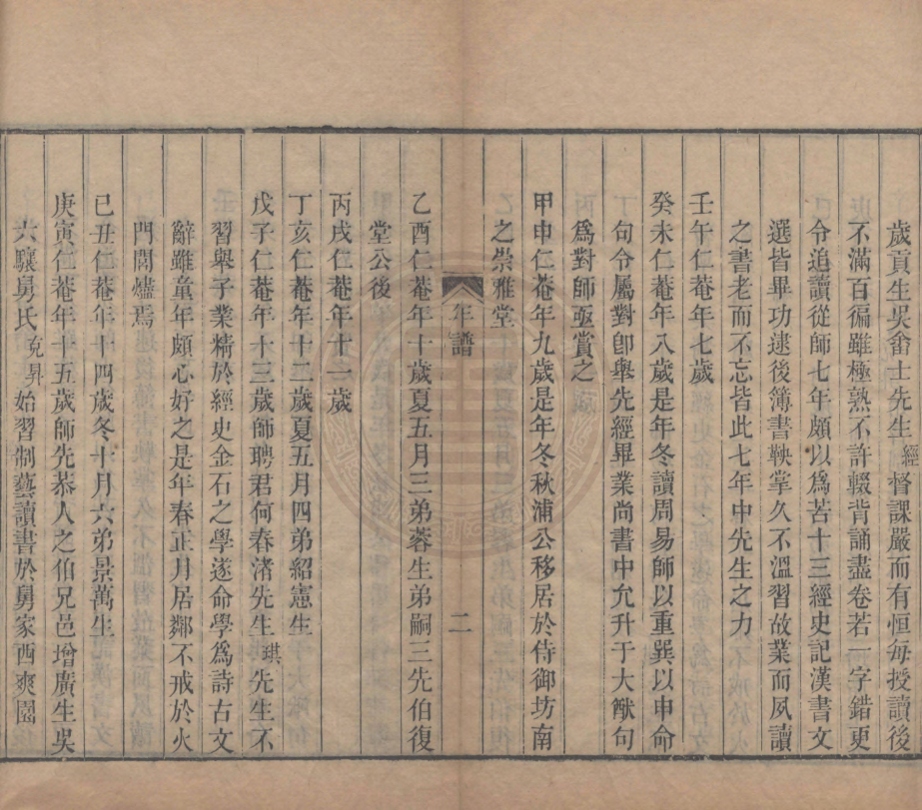 歲貢生吳畬士先生經督課嚴而有恒每授讀後
不滿百徧雖極熟不許輟背誦盡卷若一字錯更
令追讀從師七年頗以爲苦十三經史記漢書文
選皆畢功逮後簿書鞅掌久不溫習故業而夙讀
之書老而不忘皆此七年中先生之力
壬午仁菴年七歲
癸未仁菴年八歲是年冬讀周易師以重巽以申命
句令屬對卽舉先經畢業尚書中允升于大猷句
爲對師亟賞之
甲申仁菴年九歲是年冬秋浦公移居於侍御坊南
之崇雅堂
年譜 二
乙酉仁菴年十歲夏五月三弟蓉生弟嗣三先伯復
堂公後
丙戌仁菴年十一歲
丁亥仁菴年十二歲夏五月四弟紹憲生
戊子仁菴年十三歲師聘君何春渚先生琪先生不
習舉子業精於經史金石之學遂命學爲詩古文
辭雖童年頗心好之是年春正月居鄰不戒於火
門閭燼焉
己丑仁菴年十四歲冬十月六弟景萬生
庚寅仁菴年十五歲師先恭人之伯兄邑增廣生吳
六驤舅氏克昇始習制藝讀書於舅家西爽園